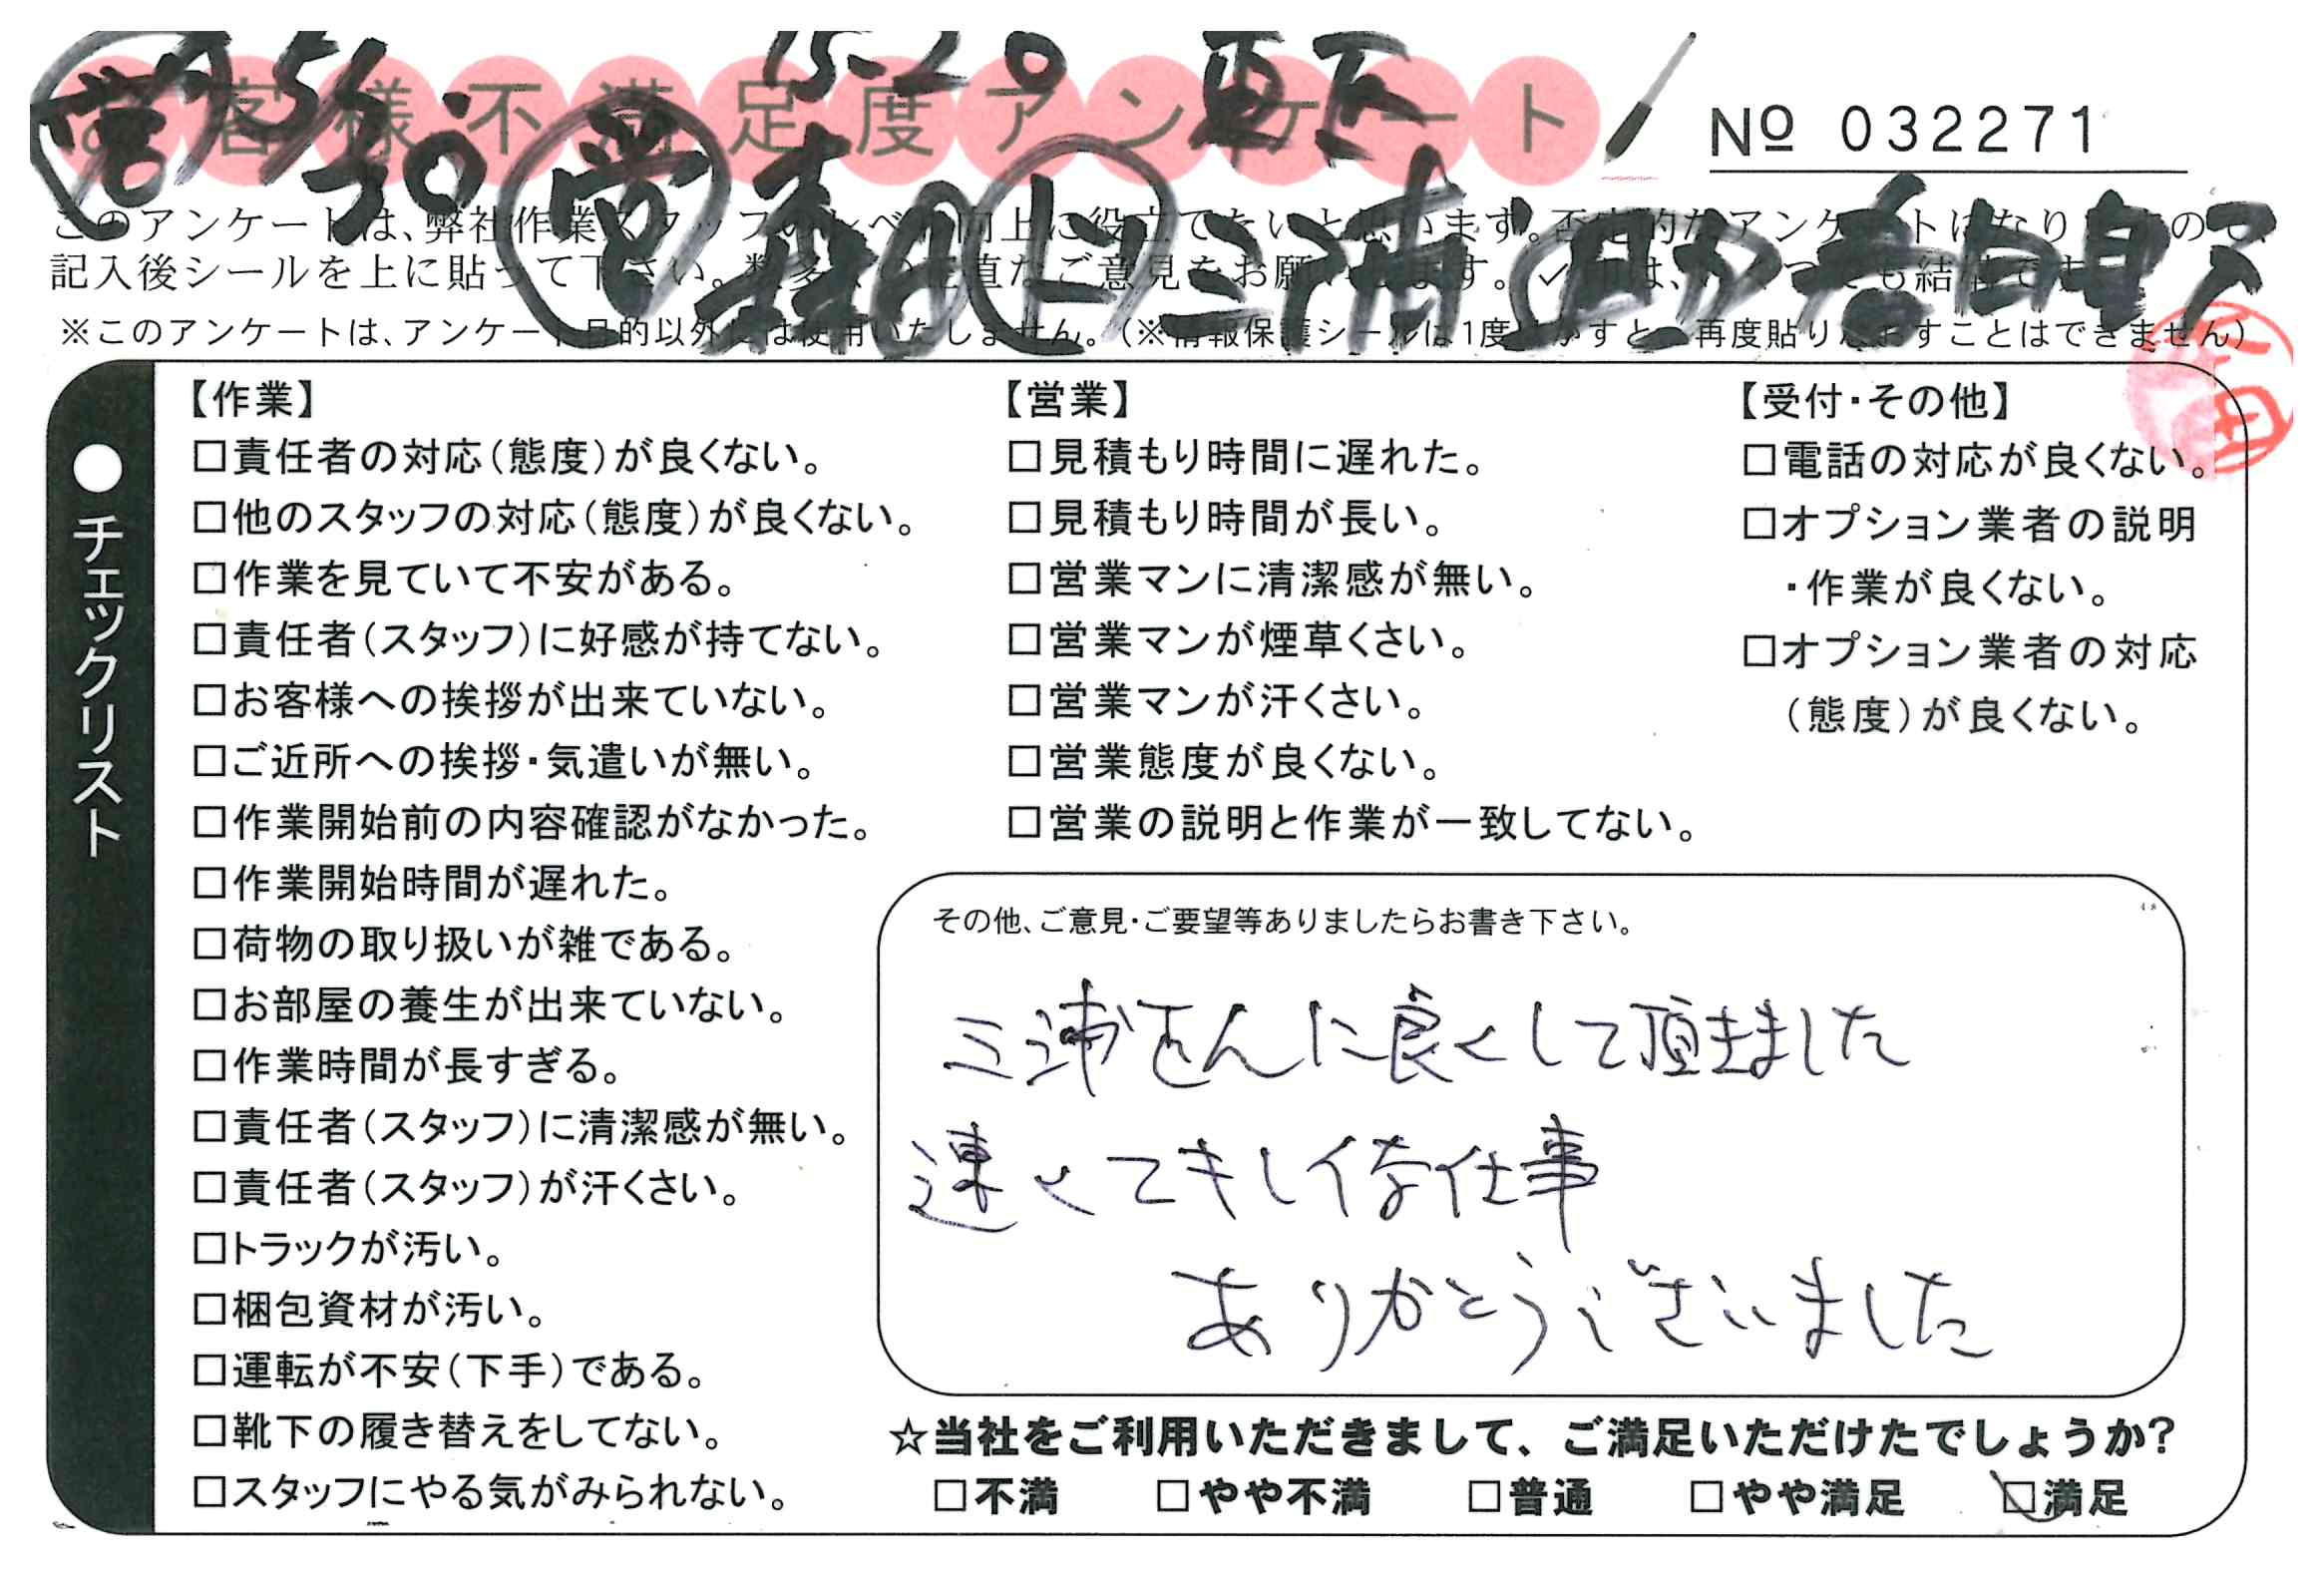 お客様不満足度アンケート
№ 032271
15-20
このアンケートは、弊社作業スタッフのレベル向上に役立てたいと思います。否定的なアンケートになりますので、
記入後シールを上に貼って下さい。数多くの正直なご意見をお願いします。✓印は、いくつでも結構です。
※このアンケートは、アンケート目的以外には使用いたしません。（※情報保護シールは1度はがすと、再度貼りなおすことはできません）
三浦
●チェックリスト
【作業】
□責任者の対応（態度）が良くない。
□他のスタッフの対応（態度）が良くない。
□作業を見ていて不安がある。
□責任者（スタッフ）に好感が持てない。
□お客様への挨拶が出来ていない。
□ご近所への挨拶・気遣いが無い。
□作業開始前の内容確認がなかった。
□作業開始時間が遅れた。
□荷物の取り扱いが雑である。
□お部屋の養生が出来ていない。
□作業時間が長すぎる。
□責任者（スタッフ）に清潔感が無い。
□責任者（スタッフ）が汗くさい。
□トラックが汚い。
□梱包資材が汚い。
□運転が不安（下手）である。
□靴下の履き替えをしてない。
□スタッフにやる気がみられない。
【営業】
□見積もり時間に遅れた。
□見積もり時間が長い。
□営業マンに清潔感が無い。
□営業マンが煙草くさい。
□営業マンが汗くさい。
□営業態度が良くない。
□営業の説明と作業が一致してない。
【受付・その他】
□電話の対応が良くない。
□オプション業者の説明
・作業が良くない。
□オプション業者の対応
（態度）が良くない。
その他、ご意見・ご要望等ありましたらお書き下さい。
三浦さんに良くして頂きました
速くてキレイな仕事
ありがとうございました
☆当社をご利用いただきまして、ご満足いただけたでしょうか？
□不満 □やや不満 □普通 □やや満足 ☑満足